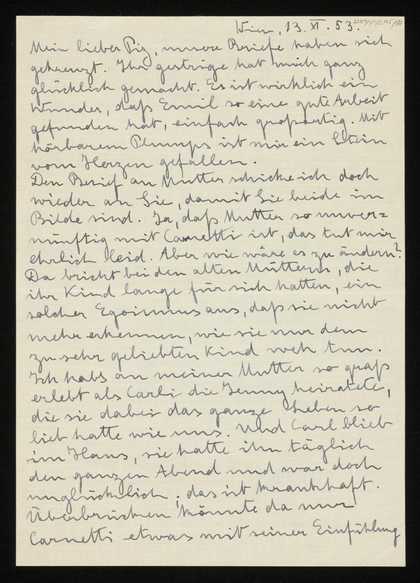 Wien, 13. XI. 53.
Mein lieber Piz, unsere Briefe haben sich
gekreuzt. Ihr gestriger hat mich ganz
glücklich gemacht. Es ist wirklich ein
Wunder, daß Emil so eine gute Arbeit
gefunden hat, einfach großartig. Mit
hörbarem Plumps ist mir ein Stein
vom Herzen gefallen.
Den Brief an Mutter schicke ich doch
wieder an Sie, damit Sie beide im
Bilde sind. Ja, daß Mutter so unver=
nünftig mit Carnetti ist, das tut mir
ehrlich leid. Aber wie wäre es zu ändern?
Da bricht bei den alten Müttern, die
ihr Kind lange für sich hatten, ein
solcher Egoismus aus, daß sie nicht
mehr erkennen, wie sie nur dem
zu sehr geliebten Kind weh tun.
Ich habs an meiner Mutter so groß
erlebt als Carli die Jenny heiratete,
die sie dabei das ganze Leben so
lieb hatte wie uns. Und Carl blieb
im Haus, sie hatte ihn täglich
den ganzen Abend und war doch
unglücklich; das ist krankhaft.
Überbrücken könnte da nur
Carnetti etwas mit seiner Einfühlung